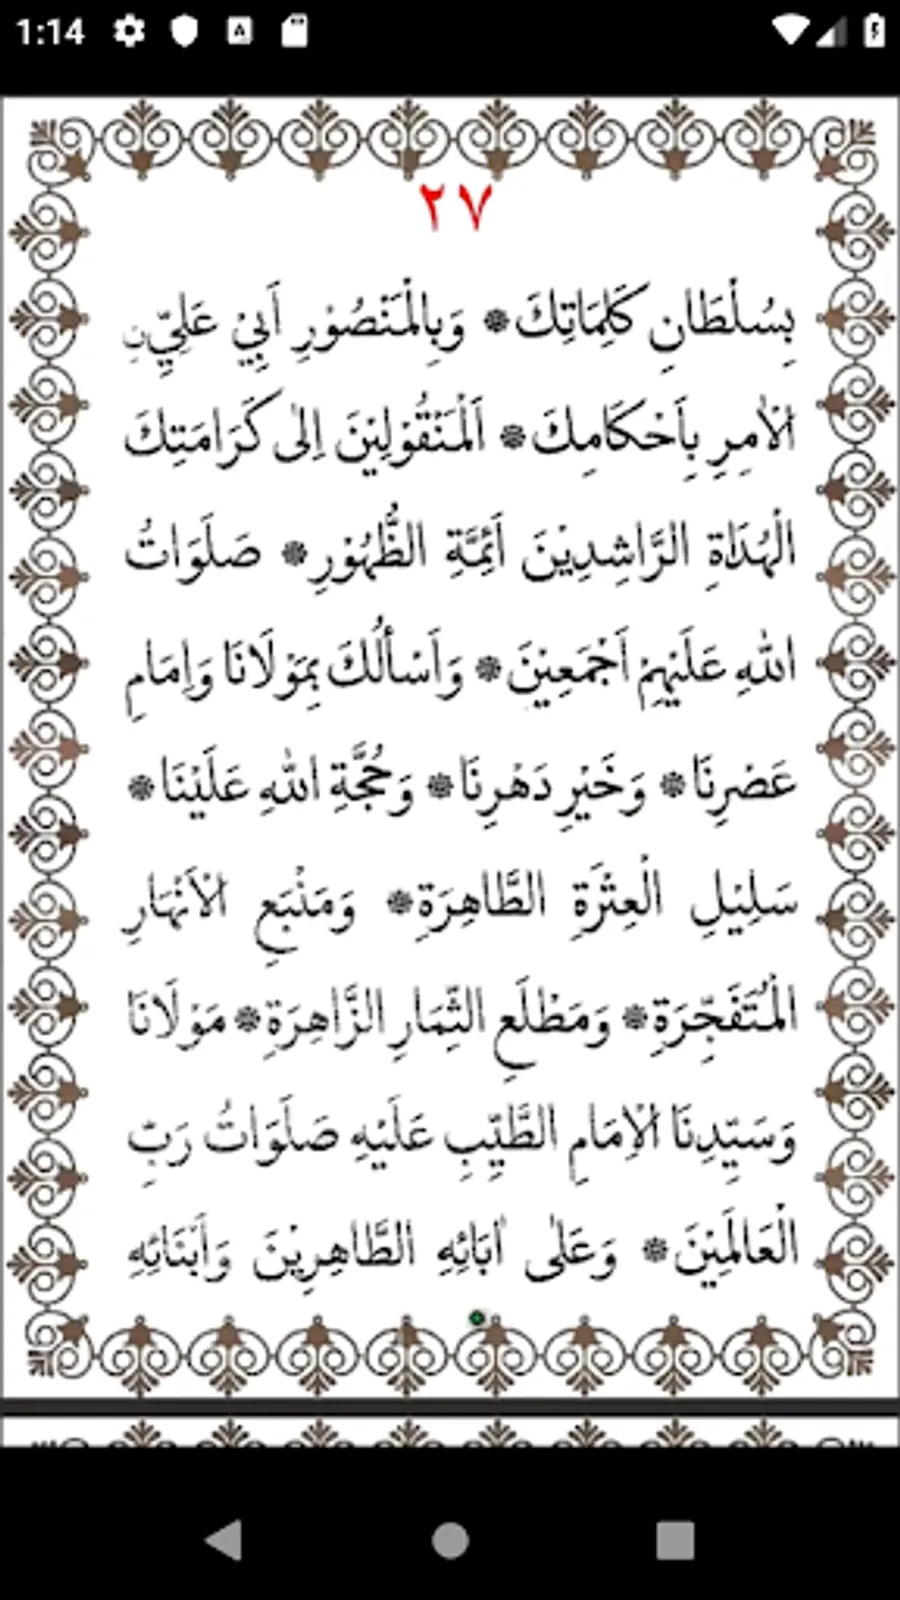 1:14
٢٧
بِسُلْطَانِ كَلِمَاتِكَ ❁ وَبِالْمَنْصُوْرِ اَبِيْ عَلِيِّنِ
الْاٰمِرِ بِاَحْكَامِكَ ❁ اَلْمَنْقُوْلِيْنَ اِلٰى كَرَامَتِكَ
الْهُدَاةِ الرَّاشِدِيْنَ اَئِمَّةِ الظُّهُوْرِ ❁ صَلَوَاتُ
اللهِ عَلَيْهِمْ اَجْمَعِيْنَ ❁ وَاَسْأَلُكَ بِمَوْلَانَا وَاِمَامِ
عَصْرِنَا ❁ وَخَيْرِ دَهْرِنَا ❁ وَحُجَّةِ اللهِ عَلَيْنَا ❁
سَلِيْلِ الْعِتْرَةِ الطَّاهِرَةِ ❁ وَمَنْبَعِ الْاَنْهَارِ
الْمُتَفَجِّرَةِ ❁ وَمَطْلَعِ الثِّمَارِ الزَّاهِرَةِ ❁ مَوْلَانَا
وَسَيِّدِنَا الْاِمَامِ الطَّيِّبِ عَلَيْهِ صَلَوَاتُ رَبِّ
الْعَالَمِيْنَ ❁ وَعَلٰى اٰبَائِهِ الطَّاهِرِيْنَ وَاَبْنَائِهِ